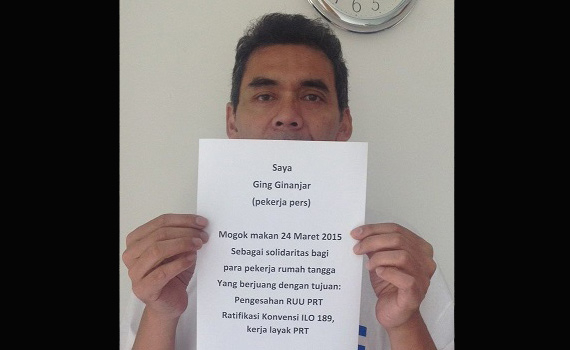 Saya
Ging Ginanjar
(pekerja pers)
Mogok makan 24 Maret 2015
Sebagai solidaritas bagi
para pekerja rumah tangga
Yang berjuang dengan tujuan:
Pengesahan RUU PRT
Ratifikasi Konvensi ILO 189,
kerja layak PRT